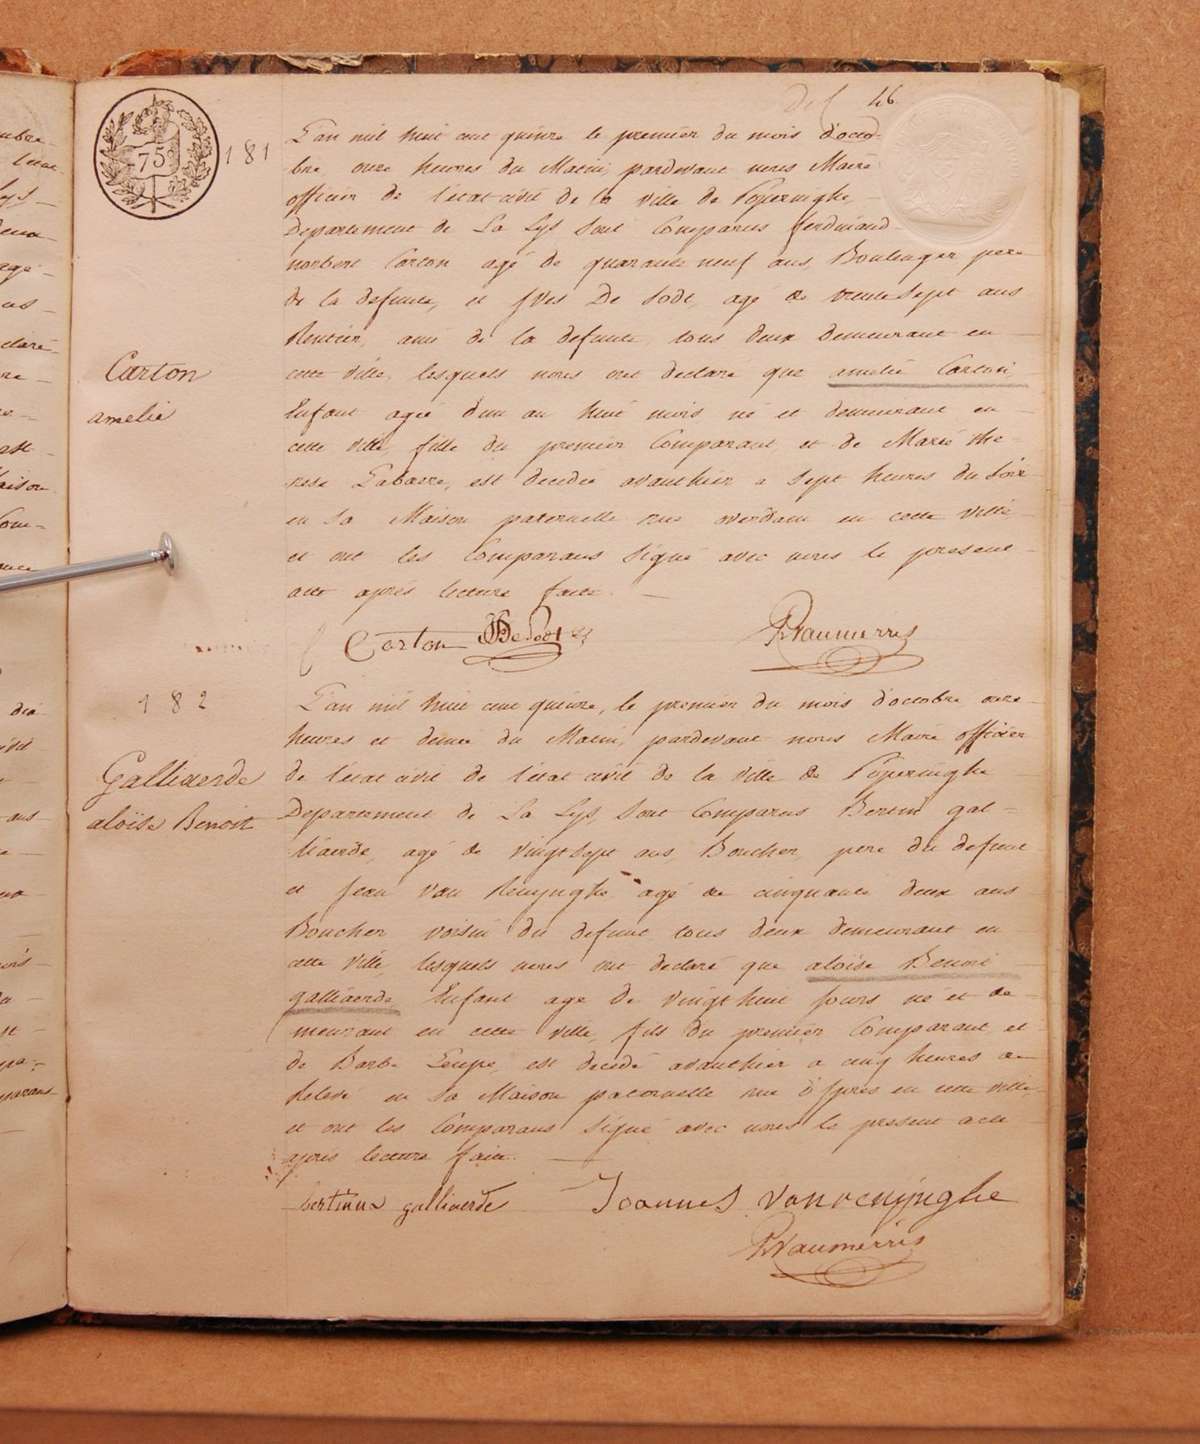 46
75
181
L'an mil huit cent quinze le premier du mois d'octo-
bre, onze heures du Matin, pardevant nous Maire
officier de l'état civil de la ville de Poperinghe,
Departement de La Lys sont Comparus ferdinand
norbert Carton agé de quarante neuf ans, Boulanger pere
de la defunte, et Yves De Sodt, agé de trente Sept ans
Rentier, ami de la defunte, tous deux demeurant en
Carton
cette ville, lesquels nous ont declaré que amelie Carton
amelie
Enfant agée d'un an huit mois né et demeurant en
cette ville, fille du premier Comparant, et de Marie the-
rese Labaere, est decedée avanthier a Sept heures du Soir
en Sa Maison paternelle rue overdam en cette ville
et ont les Comparans Signé avec nous le present
acte après lecture faite.
Carton De Sodt
182
L'an mil huit cent quinze, le premier du mois d'octobre onze
heures et demie du Matin, pardevant nous Maire officier
Galliaerde
de l'état civil de l'état civil de la ville de Poperinghe
aloïse Benoit
Departement de La Lys, sont Comparus Bertin gal-
liaerde, agé de vingt Sept ans, Boucher, pere du defunt
et Jean van Renijnghe agé de cinquante deux ans
Boucher voisin du defunt tous deux demeurant en
cette ville, lesquels nous ont declaré que aloïse Benoit
galliaerde Enfant agé de vingt huit jours né et de-
meurant en cette ville, fils du premier Comparant, et
de Barbe Leupe, est decedé avanthier a cinq heures de
Relevé en Sa Maison paternelle rue d'Ypres en cette ville
et ont les Comparans Signé avec nous le present acte
après lecture faite.
bertinus galliaerde Joannes vanrenijnghe